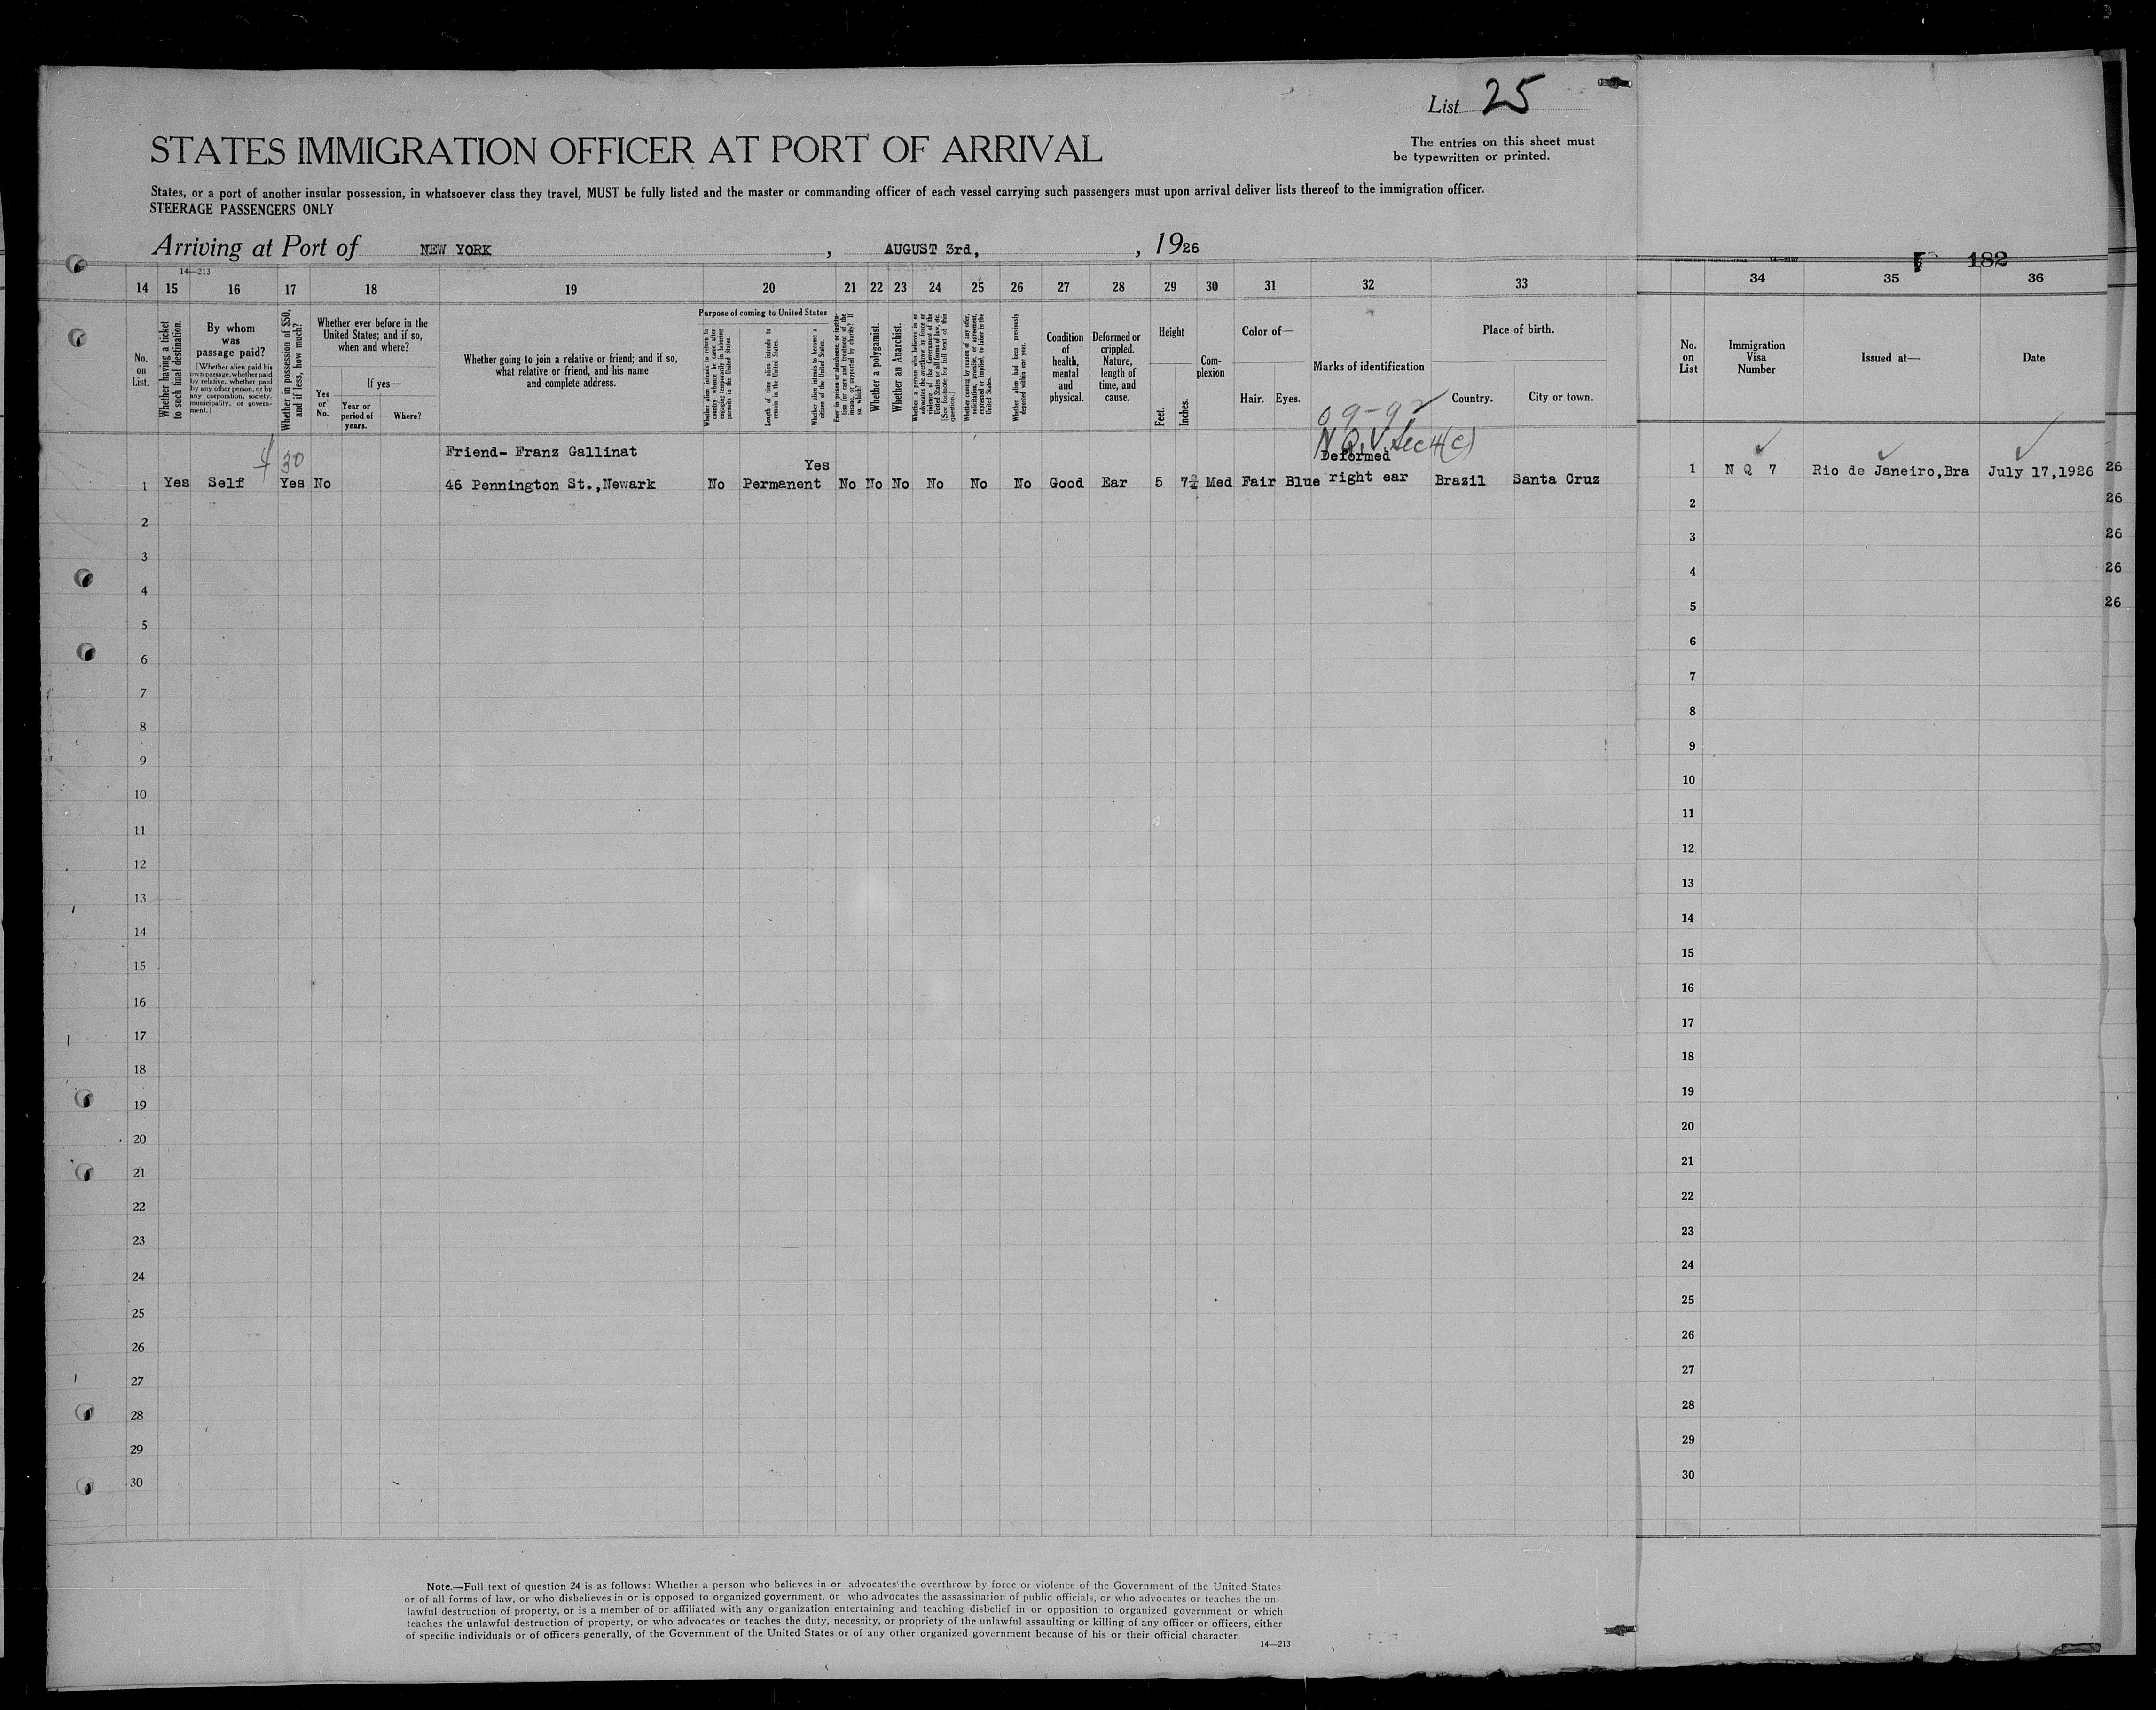 List 25
STATES IMMIGRATION OFFICER AT PORT OF ARRIVAL
The entries on this sheet must
be typewritten or printed.
States, or a port of another insular possession, in whatsoever class they travel, MUST be fully listed and the master or commanding officer of each vessel carrying such passengers must upon arrival deliver lists thereof to the immigration officer.
STEERAGE PASSENGERS ONLY
Arriving at Port of NEW YORK , AUGUST 3rd, , 1926
14—213
182
14 15 16 17 18 19 20 21 22 23 24 25 26 27 28 29 30 31 32 33 34 35 36
No.
on
List.
Whether having a ticket
to such final destination.
By whom
was
passage paid?
[Whether alien paid his
own passage, whether paid
by relative, whether paid
by any other person, or by
any corporation, society,
municipality, or govern-
ment.]
Whether in possession of $50,
and if less, how much?
Whether ever before in the
United States; and if so,
when and where?
Yes
or
No.
If yes—
Year or
period of
years.
Where?
Whether going to join a relative or friend; and if so,
what relative or friend, and his name
and complete address.
Purpose of coming to United States
Whether alien intends to return to
country whence he came after
engaging temporarily in laboring
pursuits in the United States.
Length of time alien intends to
remain in the United States.
Whether alien intends to become a
citizen of the United States.
Ever in prison or almshouse, or institu-
tion for care and treatment of the
insane, or supported by charity? If
so, which?
Whether a polygamist.
Whether an Anarchist.
Whether a person who believes in or
advocates the overthrow by force or
violence of the Government of the
United States or all forms of law, etc.
[See footnote for full text of this
question.]
Whether coming by reason of any offer,
solicitation, promise, or agreement,
expressed or implied, to labor in the
United States.
Whether alien had been previously
deported within one year.
Condition
of
health,
mental
and
physical.
Deformed or
crippled.
Nature,
length of
time, and
cause.
Height
Feet.
Inches.
Com-
plexion
Color of—
Hair. Eyes.
Marks of identification
Place of birth.
Country. City or town.
No.
on
List
Immigration
Visa
Number
Issued at—
Date
N.Q.V. Sec 4(c)
30
Friend- Franz Gallinat
Deformed
Yes
1 Yes Self Yes No 46 Pennington St.,Newark No Permanent No No No No No No Good Ear 5 7¾ Med Fair Blue right ear Brazil Santa Cruz
1 N Q 7 Rio de Janeiro,Bra July 17,1926 26
2 2 26
3 3 26
4 4 26
5 5 26
6 6
7 7
8 8
9 9
10 10
11 11
12 12
13 13
14 14
15 15
16 16
17 17
18 18
19 19
20 20
21 21
22 22
23 23
24 24
25 25
26 26
27 27
28 28
29 29
30 30
Note.—Full text of question 24 is as follows: Whether a person who believes in or advocates the overthrow by force or violence of the Government of the United States
or of all forms of law, or who disbelieves in or is opposed to organized government, or who advocates the assassination of public officials, or who advocates or teaches the un-
lawful destruction of property, or is a member of or affiliated with any organization entertaining and teaching disbelief in or opposition to organized government or which
teaches the unlawful destruction of property, or who advocates or teaches the duty, necessity, or propriety of the unlawful assaulting or killing of any officer or officers, either
of specific individuals or of officers generally, of the Government of the United States or of any other organized government because of his or their official character.
14—213